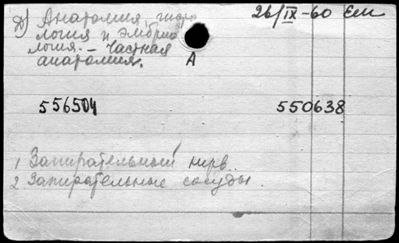 д) Анатомия, гисто
логия и эмбрио
логия. - Частная
анатомия.
А
26/IX-60
556504 550638
1 Запирательный нерв.
2 Запирательные сосуды.